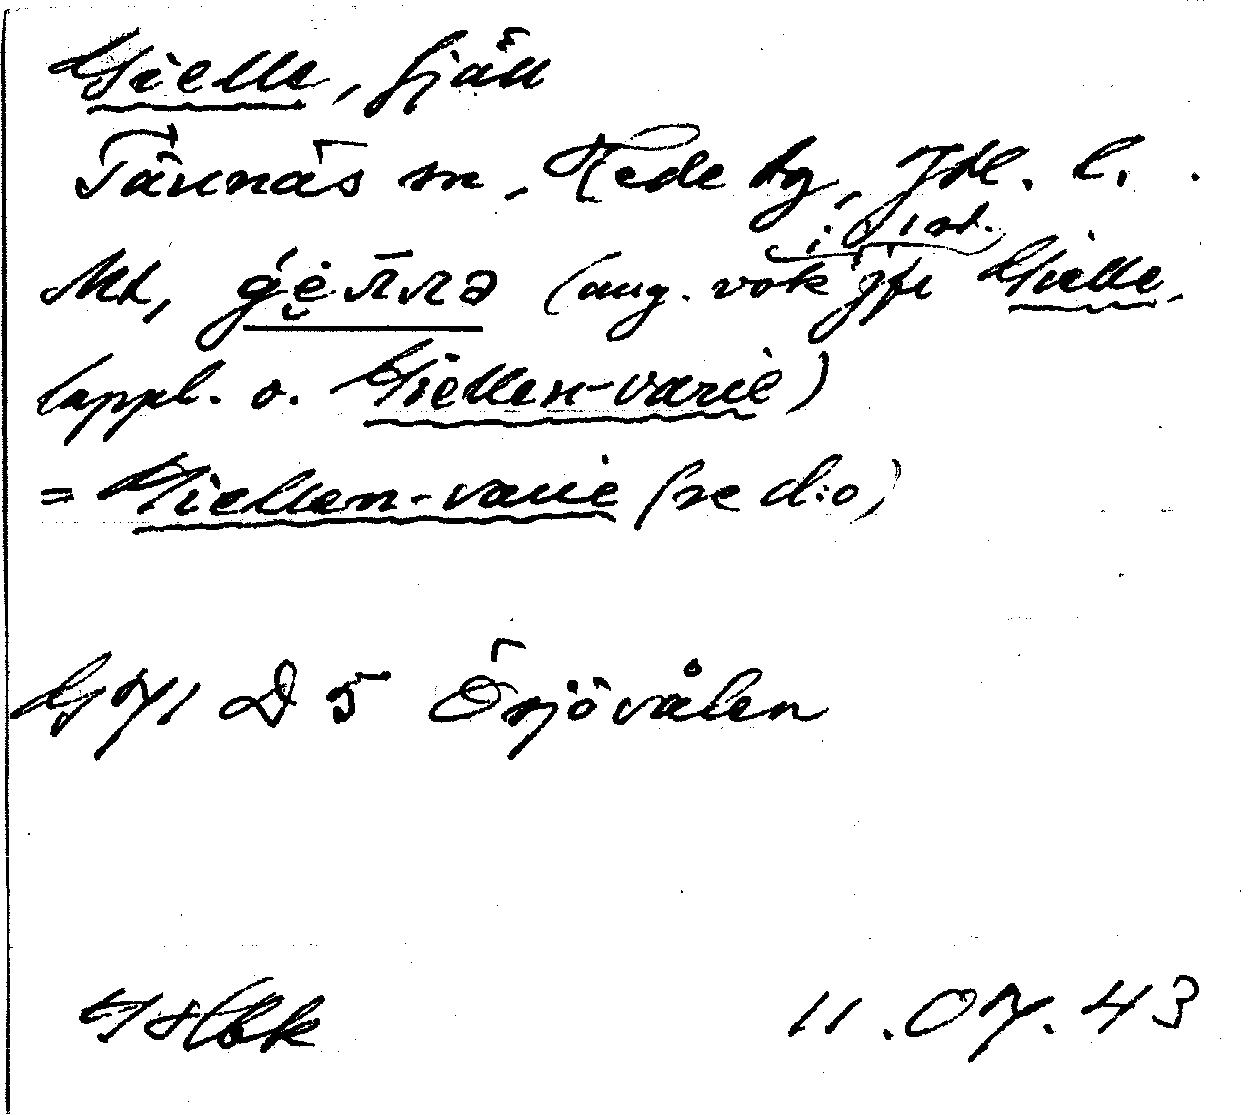 Gielle, fjäll
Tännäs sn, Hede tg, Jtl. l.
i 1 st.
Ut, (ang. vok jfr Gielle,
lappl. o. Giellen-varie)
= Giellen-varie (se d:o)
G 71 D 5 Örjövålen
11.07.43